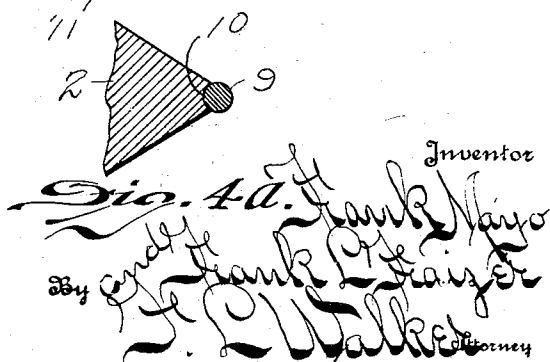 11
10
2
9
Inventor
Fig. 4a.
Frank Mayo
and
Frank L Fraizer
By
F. L. Walker
Attorney